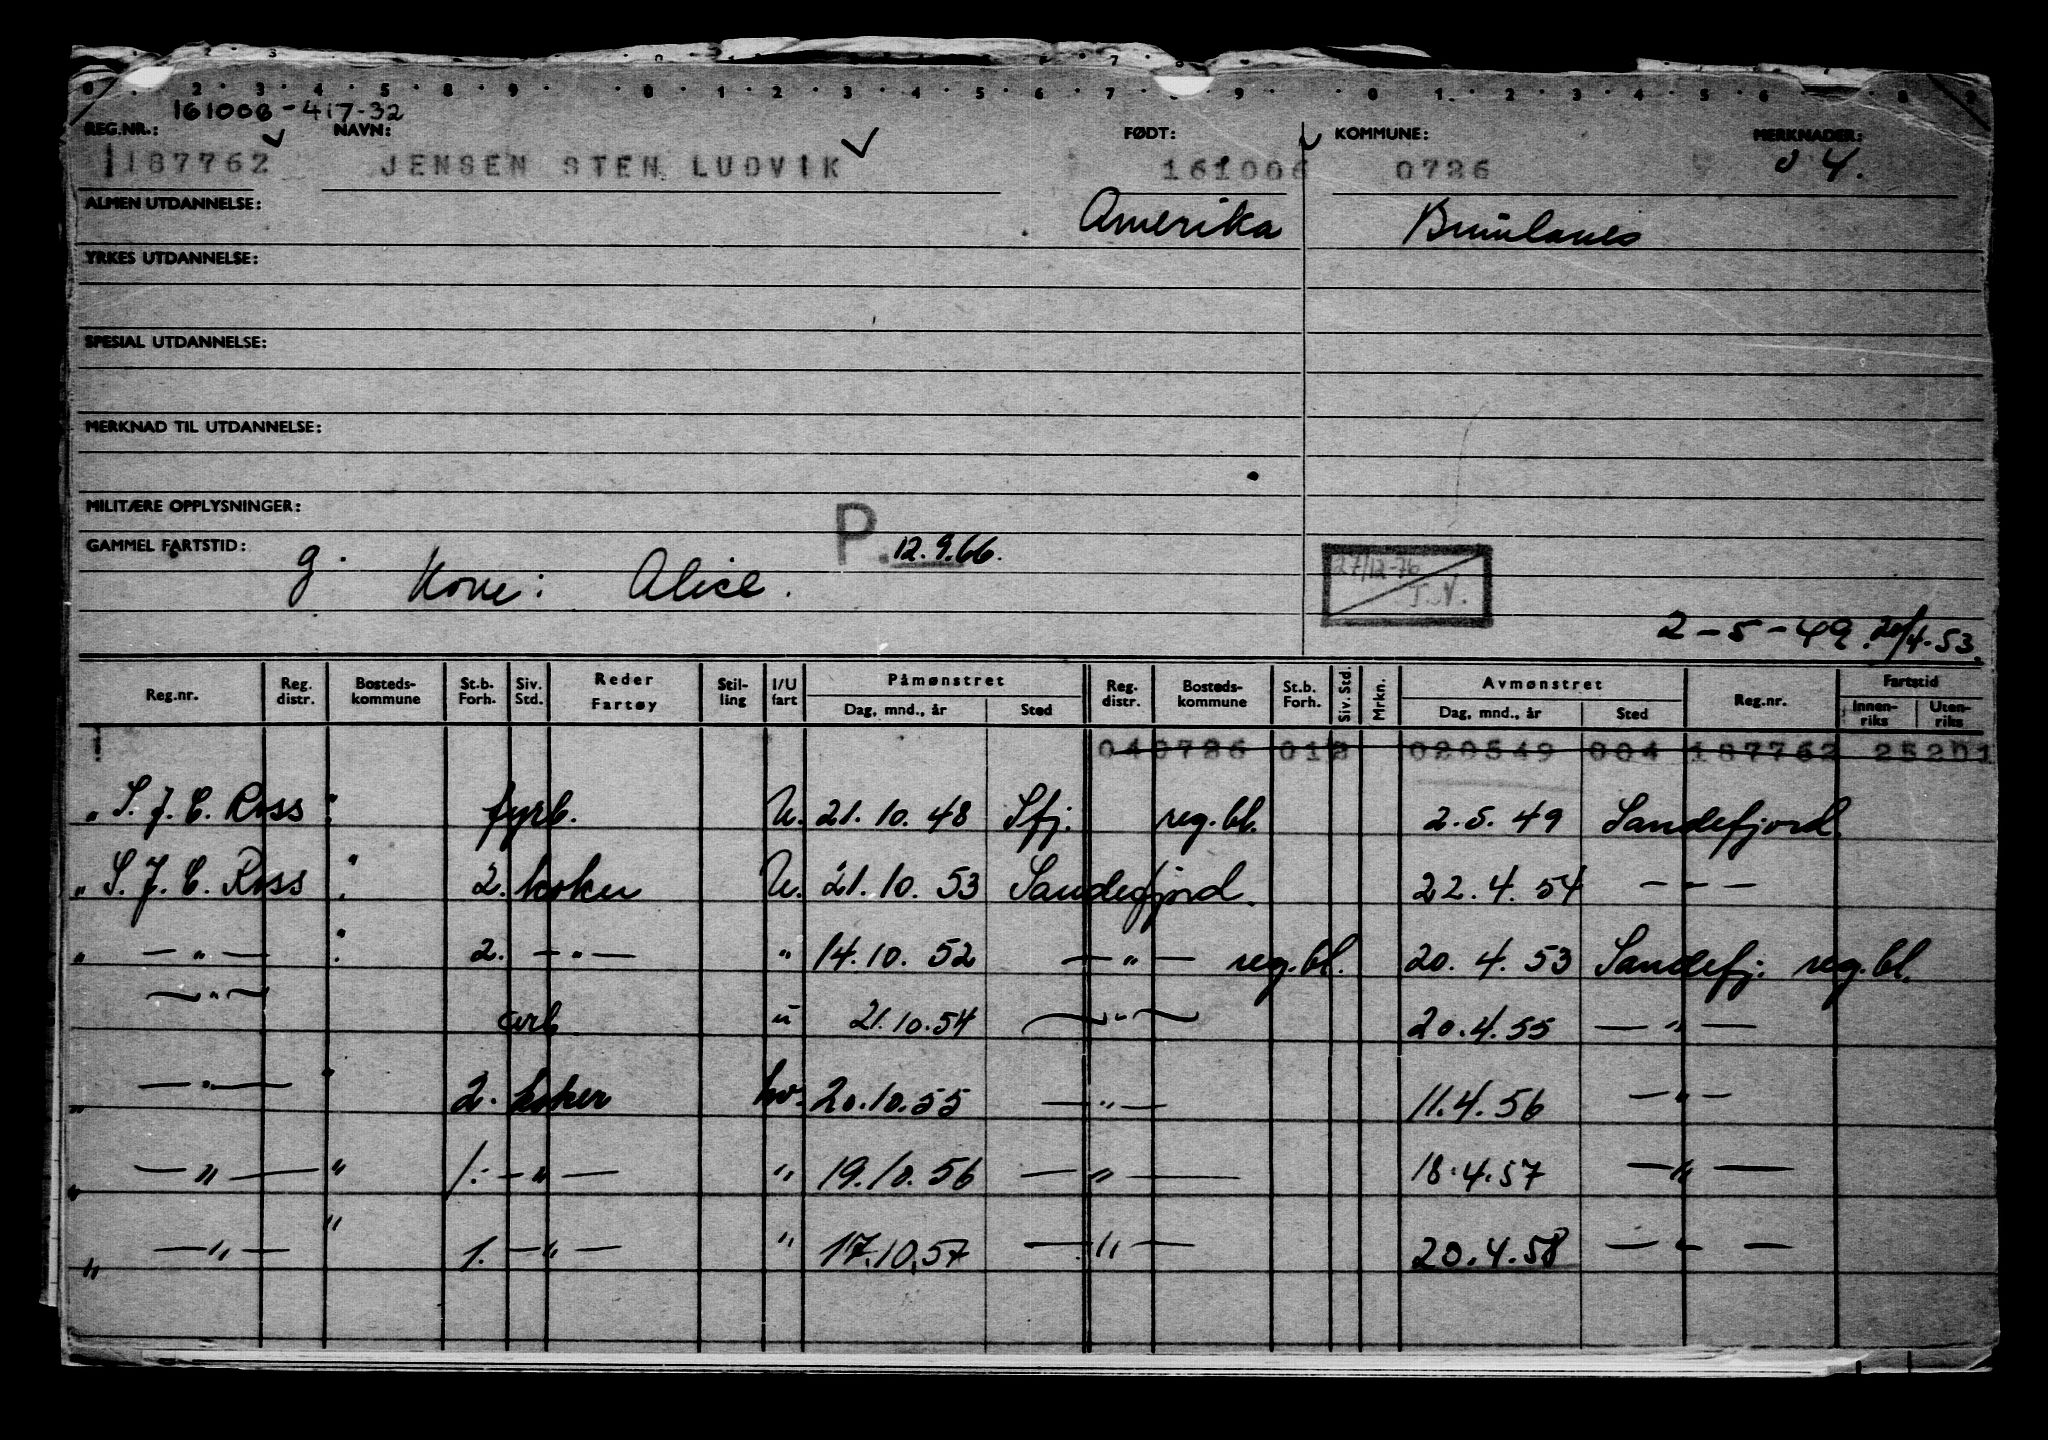 161006-417-32
REG.NR.: NAVN: FØDT: KOMMUNE: MERKNADER:
187762 JENSEN STEN LUDVIK 161006 0726 04.
ALMEN UTDANNELSE: Amerika Brunlanes
YRKES UTDANNELSE:
SPESIAL UTDANNELSE:
MERKNAD TIL UTDANNELSE:
MILITÆRE OPPLYSNINGER:
GAMMEL FARTSTID: g. Kone: Alice. P. 12.9.66.
27/12-76
2-5-49. 20/4-53.
Reg.nr. Reg. distr. Bosteds-kommune St.b. Forh. Siv. Std. Reder Fartøy Stil-ling I/U fart Påmønstret Dag, mnd., år Sted Reg. distr. Bosteds-kommune St.b. Forh. Siv. Std. Mrkn. Avmønstret Dag, mnd., år Sted Reg.nr. Fartstid Innen-riks Uten-riks
040726 012 020549 004 187762 25201
" S. J. C. Ross : fyrb. U. 21.10.48 Sfj. reg.bl. 2.5.49 Sandefjord.
" S. J. C. Ross " 2. koker U. 21.10.53 Sandefjord. 22.4.54 — " —
" — " — " 2. — " — " 14.10.52 — " — reg.bl. 20.4.53 Sandefj. reg.bl.
— " — arb. u 21.10.54 — " — 20.4.55 — " —
" — " — " 2. koker hv. 20.10.55 — " — 11.4.56 — " —
" — " — " 1. — " — " 19.10.56 — " — 18.4.57 — " —
" — " — " 1. — " — " 17.10.57 — " — 20.4.58 — " —